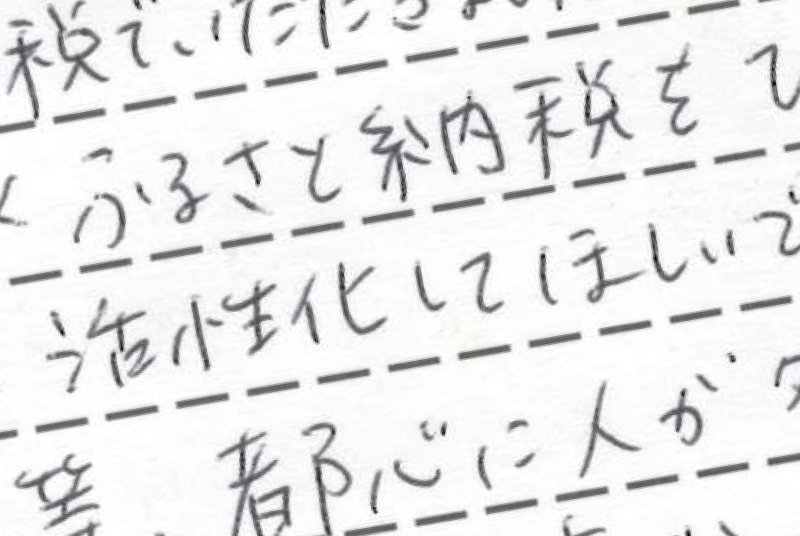 税で、いただきま
くふるさと納税をひ
活性化してほしいで
業、都心に人が